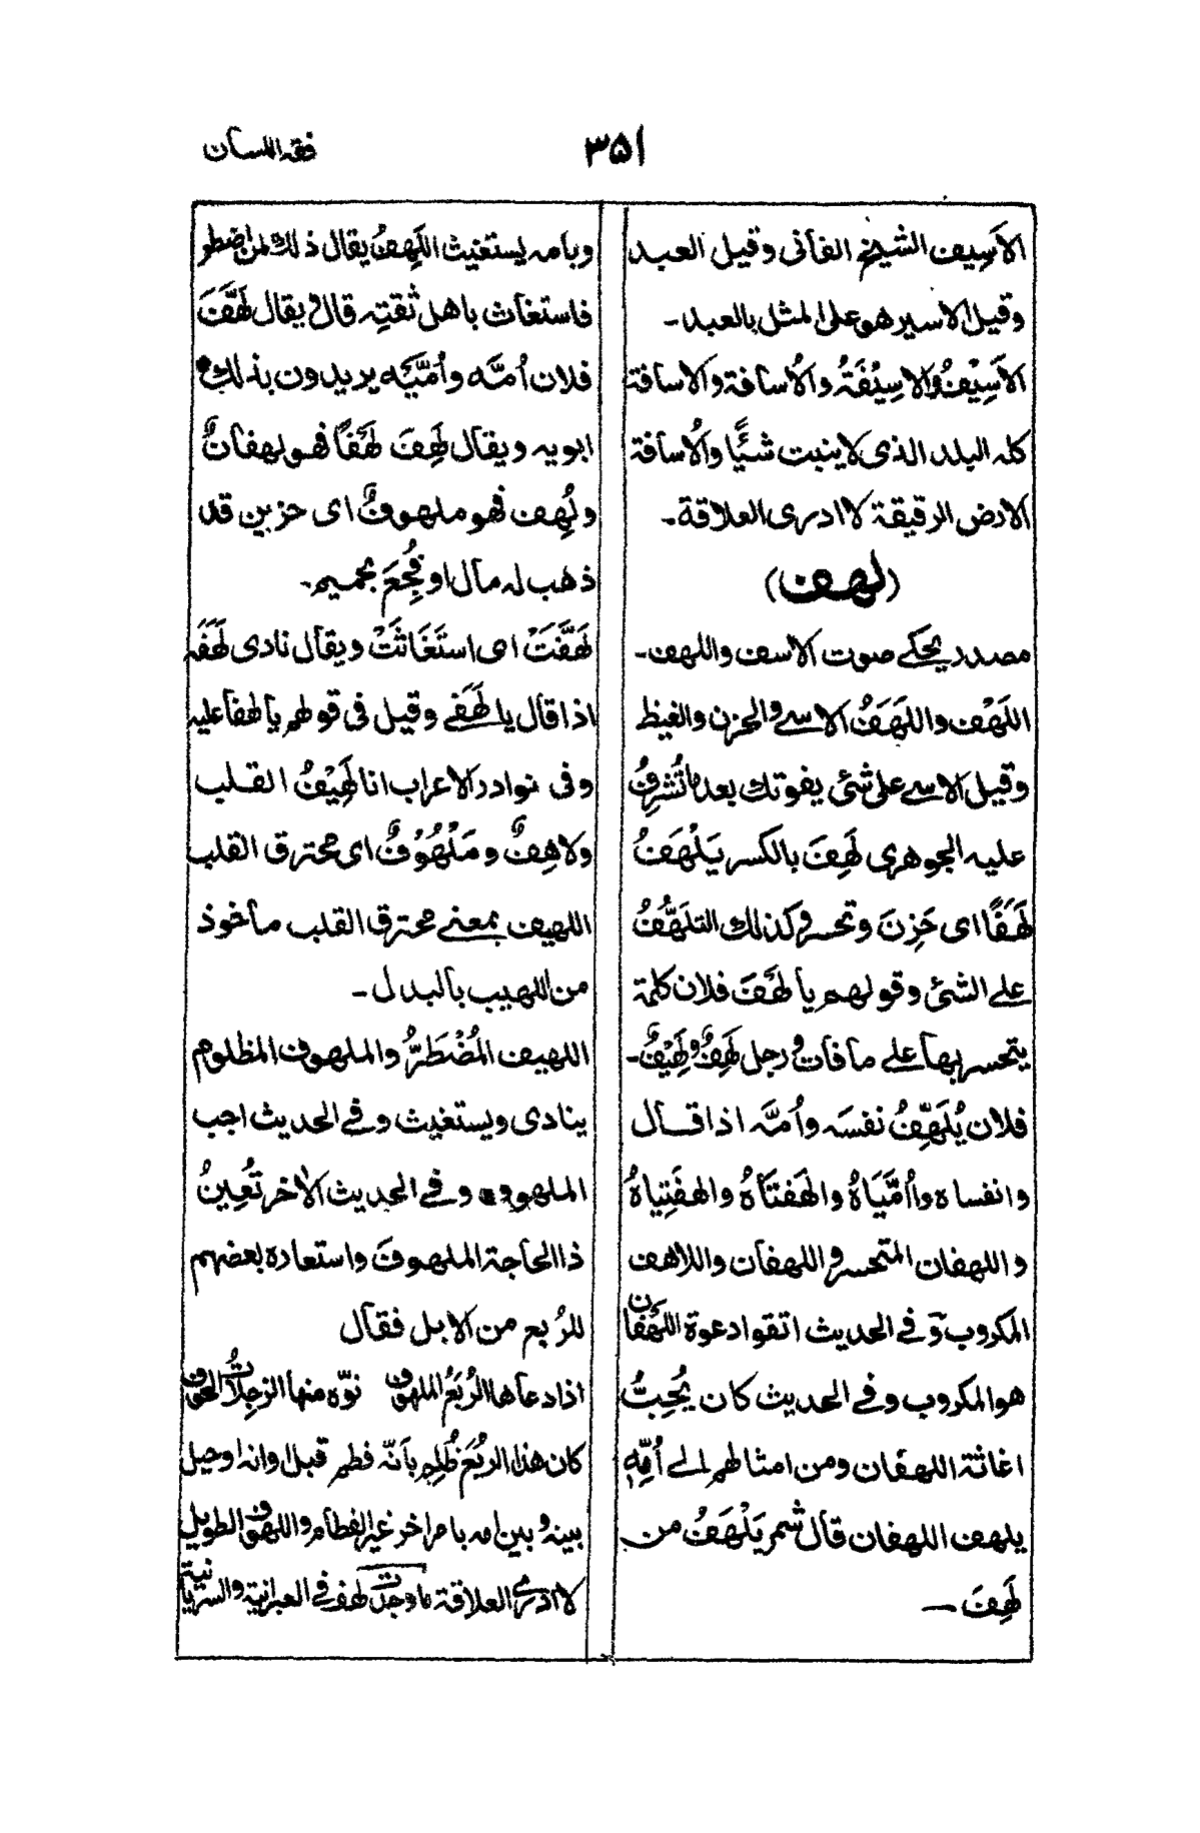 ۳۵۱
فقه اللسان
الاَسِيف الشيخ الفانى وقيل العبد
وقيل الاسير هو على المثل بالعبد۔
الاَسِيْفُ والاسِيْفَةُ والأسافة والاسافة
كله البلد الذى لا ينبت شئًا والأسافة
الارض الرقيقة لا ادرى العلاقة۔
(لهف)
مصدر يحكى صوت الاسف واللهف۔
اللَهْف واللَهَفُ الاسى والحزن والغيظ
وقيل الاسى على شئ يفوتك بعد ما تُشرِفُ
عليه الجوهرى لَهِفَ بالكسر يَلْهَفُ
لَهَفًا اى حَزِنَ وتحسر وكذلك التلهُّفُ
على الشئ وقولهم يا لَهْفَ فلان كلمة
يتحسر بها على ما فات و رجل لَهِفٌ و لَهِيْفٌ۔
فلان يُلَهِّفُ نفسَه واُمَّه اذا قال
وانفساه وااُمَّيَاهُ والَهفتَاهُ والهفَتِياهُ
واللهفان المتحسر واللهفان واللاهف
المكروب و فى الحديث اتقوا دعوة اللَهْفان
هو المكروب وفى الحديث كان يُحِبُّ
اغاثة اللهفان ومن امثالهم الى اُمِّهِ
يلهف اللهفان قال شمر يَلْهَفُ من
لَهِفَ ـ
وبامه يستغيث اللَهِفُ يقال ذلك لمن اضطر
فاستغاث باهل ثقتِه قال و يقال لَهَّفَ
فلان اُمَّه واُمَّيْه يريدون بذلك
ابويه و يقال لَهِفَ لَهَفًا فهو لهفانٌ
ولُهِف فهو ملهوفٌ اى حزين قد
ذهب له مال او فُجِعَ بحميم۔
لَهَّفَتْ اى استَغَاثَتْ ويقال نادى لَهَفَه
اذا قال يا لَهَفى وقيل فى قولهم يا لهفا عليه
وفى نوادر الاعراب انا لَهِيْفُ القلب
ولاهِفٌ و مَلْهُوْفٌ اى محترق القلب
اللهيف بمعنى محترق القلب ماخوذ
من اللهيب بالبدل۔
اللهيف المُضْطَرُّ والملهوف المظلوم
ينادى ويستغيث وفى الحديث اجب
الملهوف وفى الحديث الاخر تُعِينُ
ذا الحاجة الملهوفَ واستعاده بعضهم
للرُبع من الابل فقال
اذا دعاها الرُبَعُ الملهوف نوّه منها الزجِلاتُ الحوف
كان هذا الربُع ظُلِم بانّه فطم قبل اوانه او حيل
بينه و بين امه بامر اخر غير الفطام واللهوف الطويل
لا ادرى العلاقة ما وجدت لهف فى العبرانية والسريانية